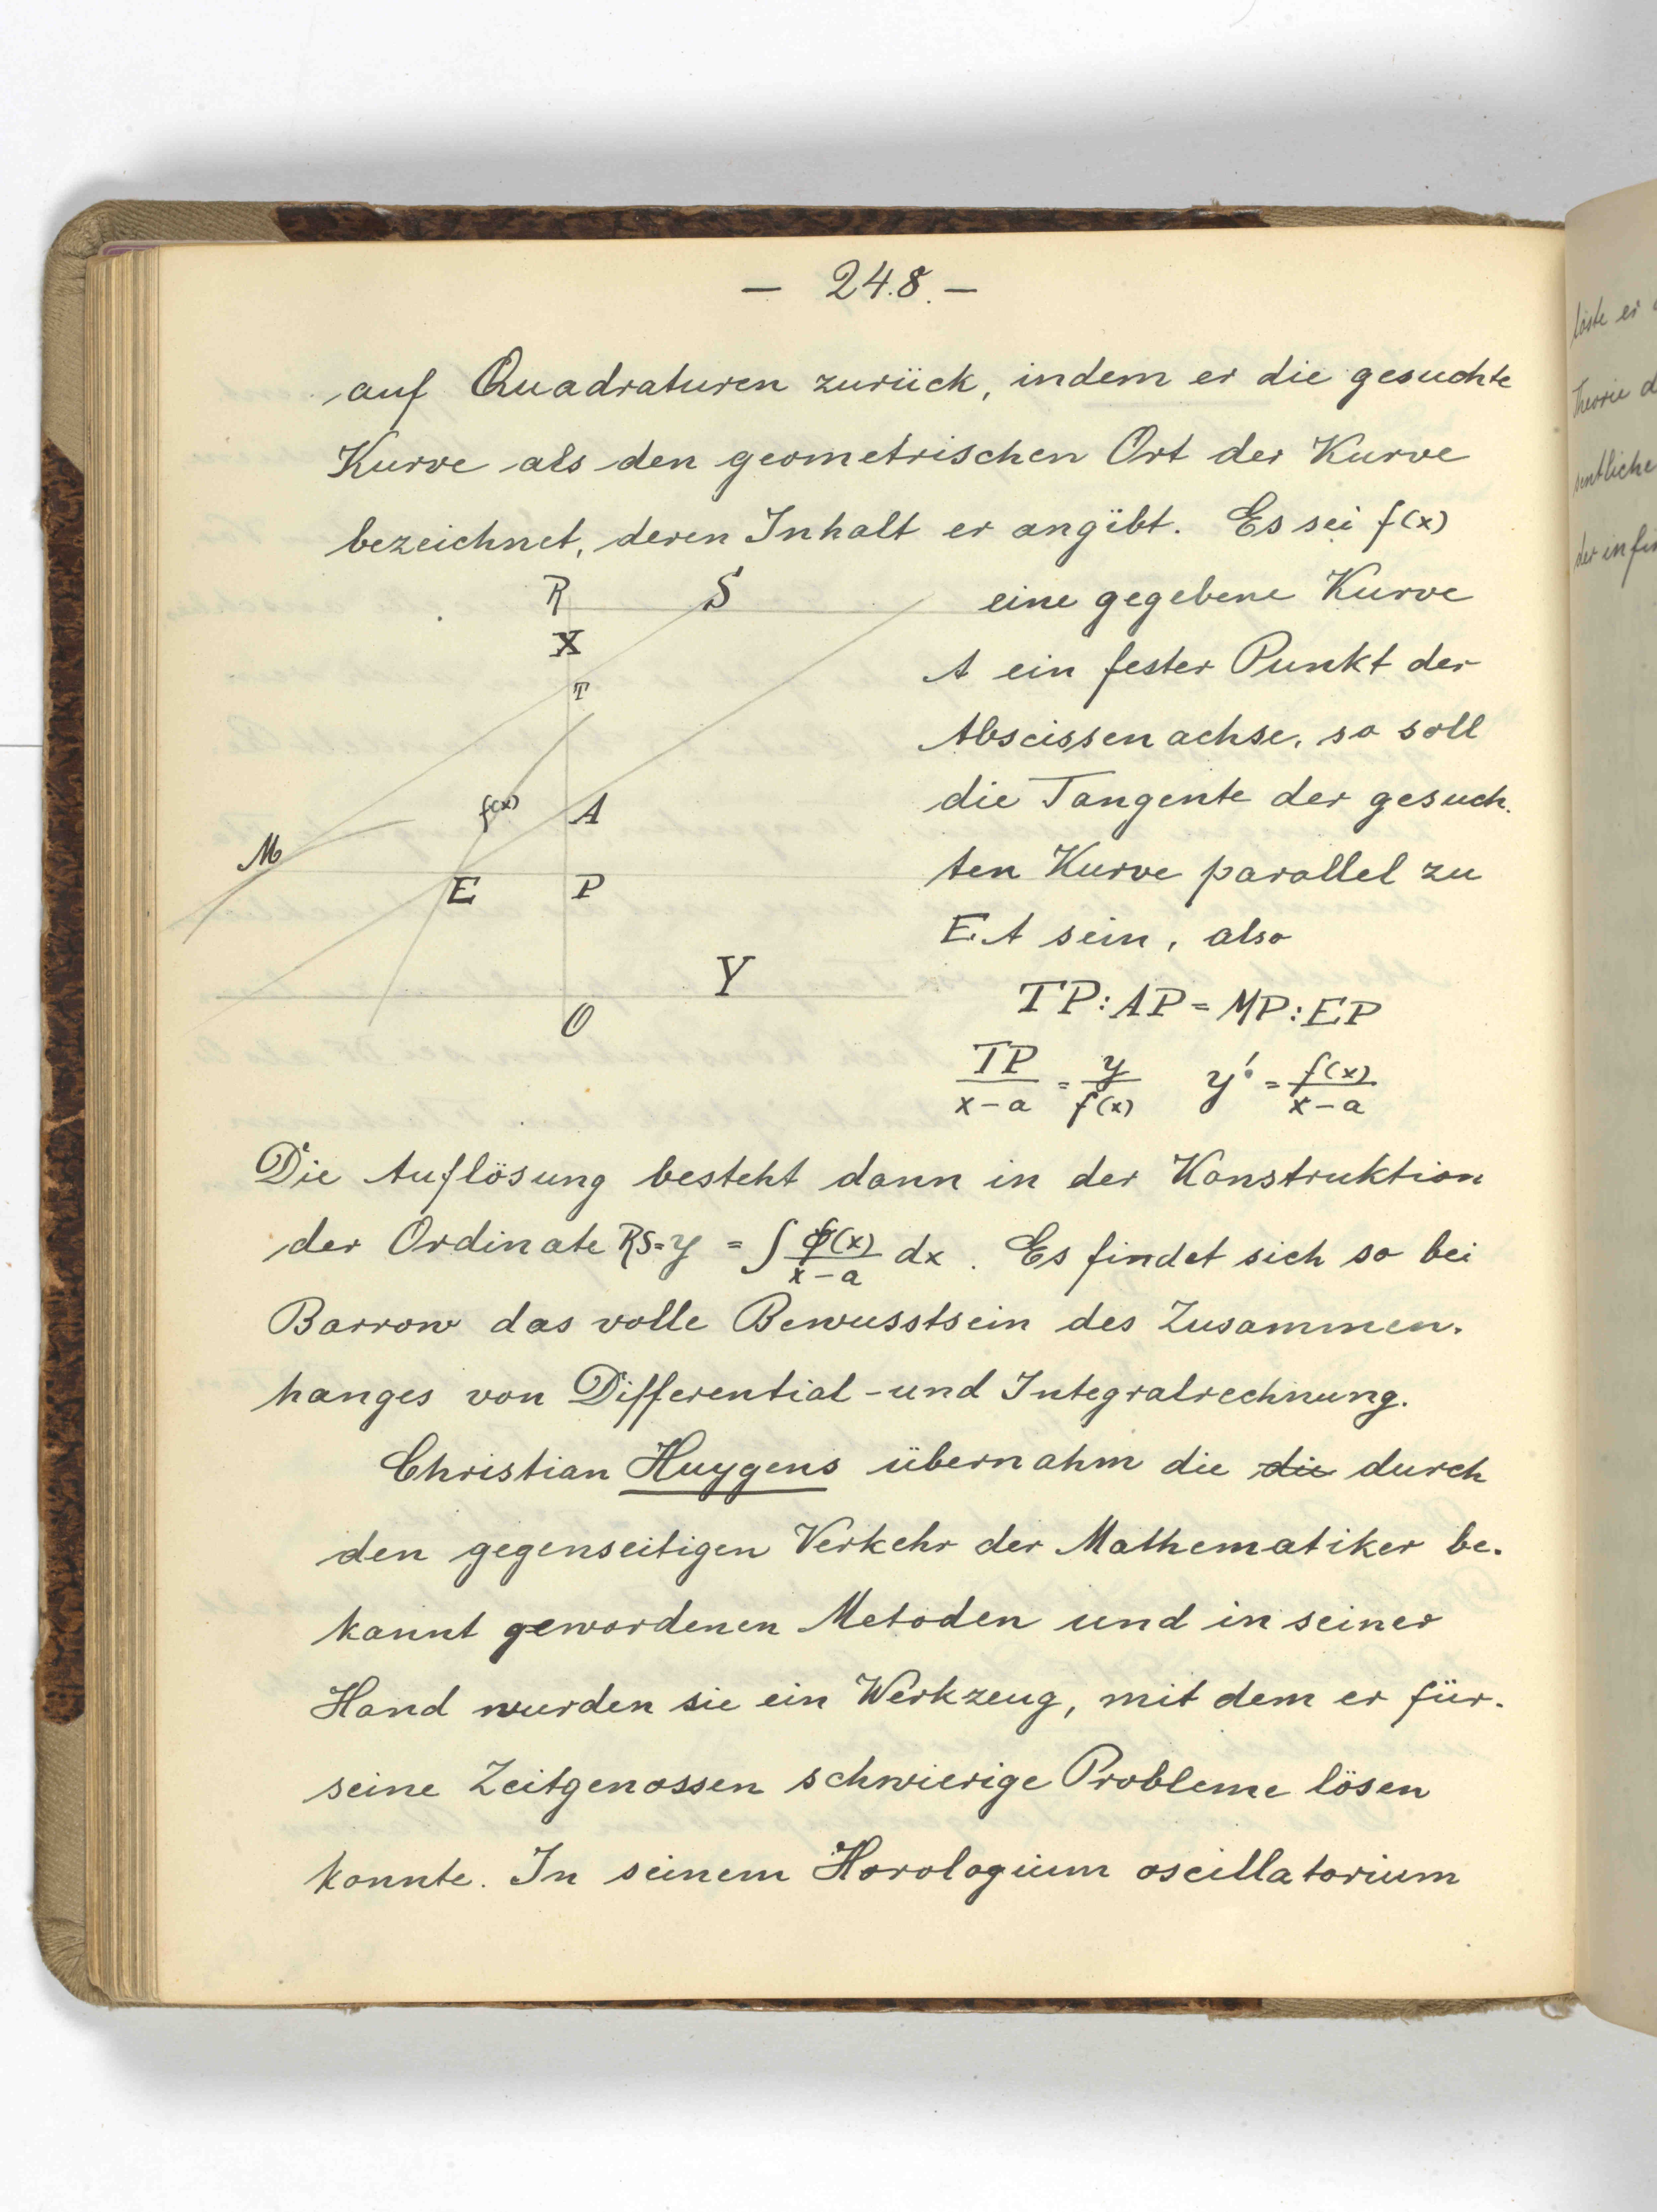 — 248. —
auf Quadraturen zurück, indem er die gesuchte
Kurve als den geometrischen Ort der Kurve
bezeichnet, deren Inhalt er angibt. Es sei f(x)
R S
X
T
f(x) A
M
E P
Y
O
eine gegebene Kurve
A ein fester Punkt der
Abscissenachse, so soll
die Tangente der gesuch-
ten Kurve parallel zu
EA sein, also
TP:AP = MP:EP
TP/x-a = y/f(x) y' = f(x)/x-a
Die Auflösung besteht dann in der Konstruktion
der Ordinate RS=y = ∫ f(x)/x-a dx. Es findet sich so bei
Barrow das volle Bewusstsein des Zusammen-
hanges von Differential-und Integralrechnung.
Christian Huygens übernahm die die durch
den gegenseitigen Verkehr der Mathematiker be-
kannt gewordenen Metoden und in seiner
Hand wurden sie ein Werkzeug, mit dem er für
seine Zeitgenossen schwierige Probleme lösen
konnte. In seinem Horologium oscillatorium
löste er
Theorie d
sentliche
der infin